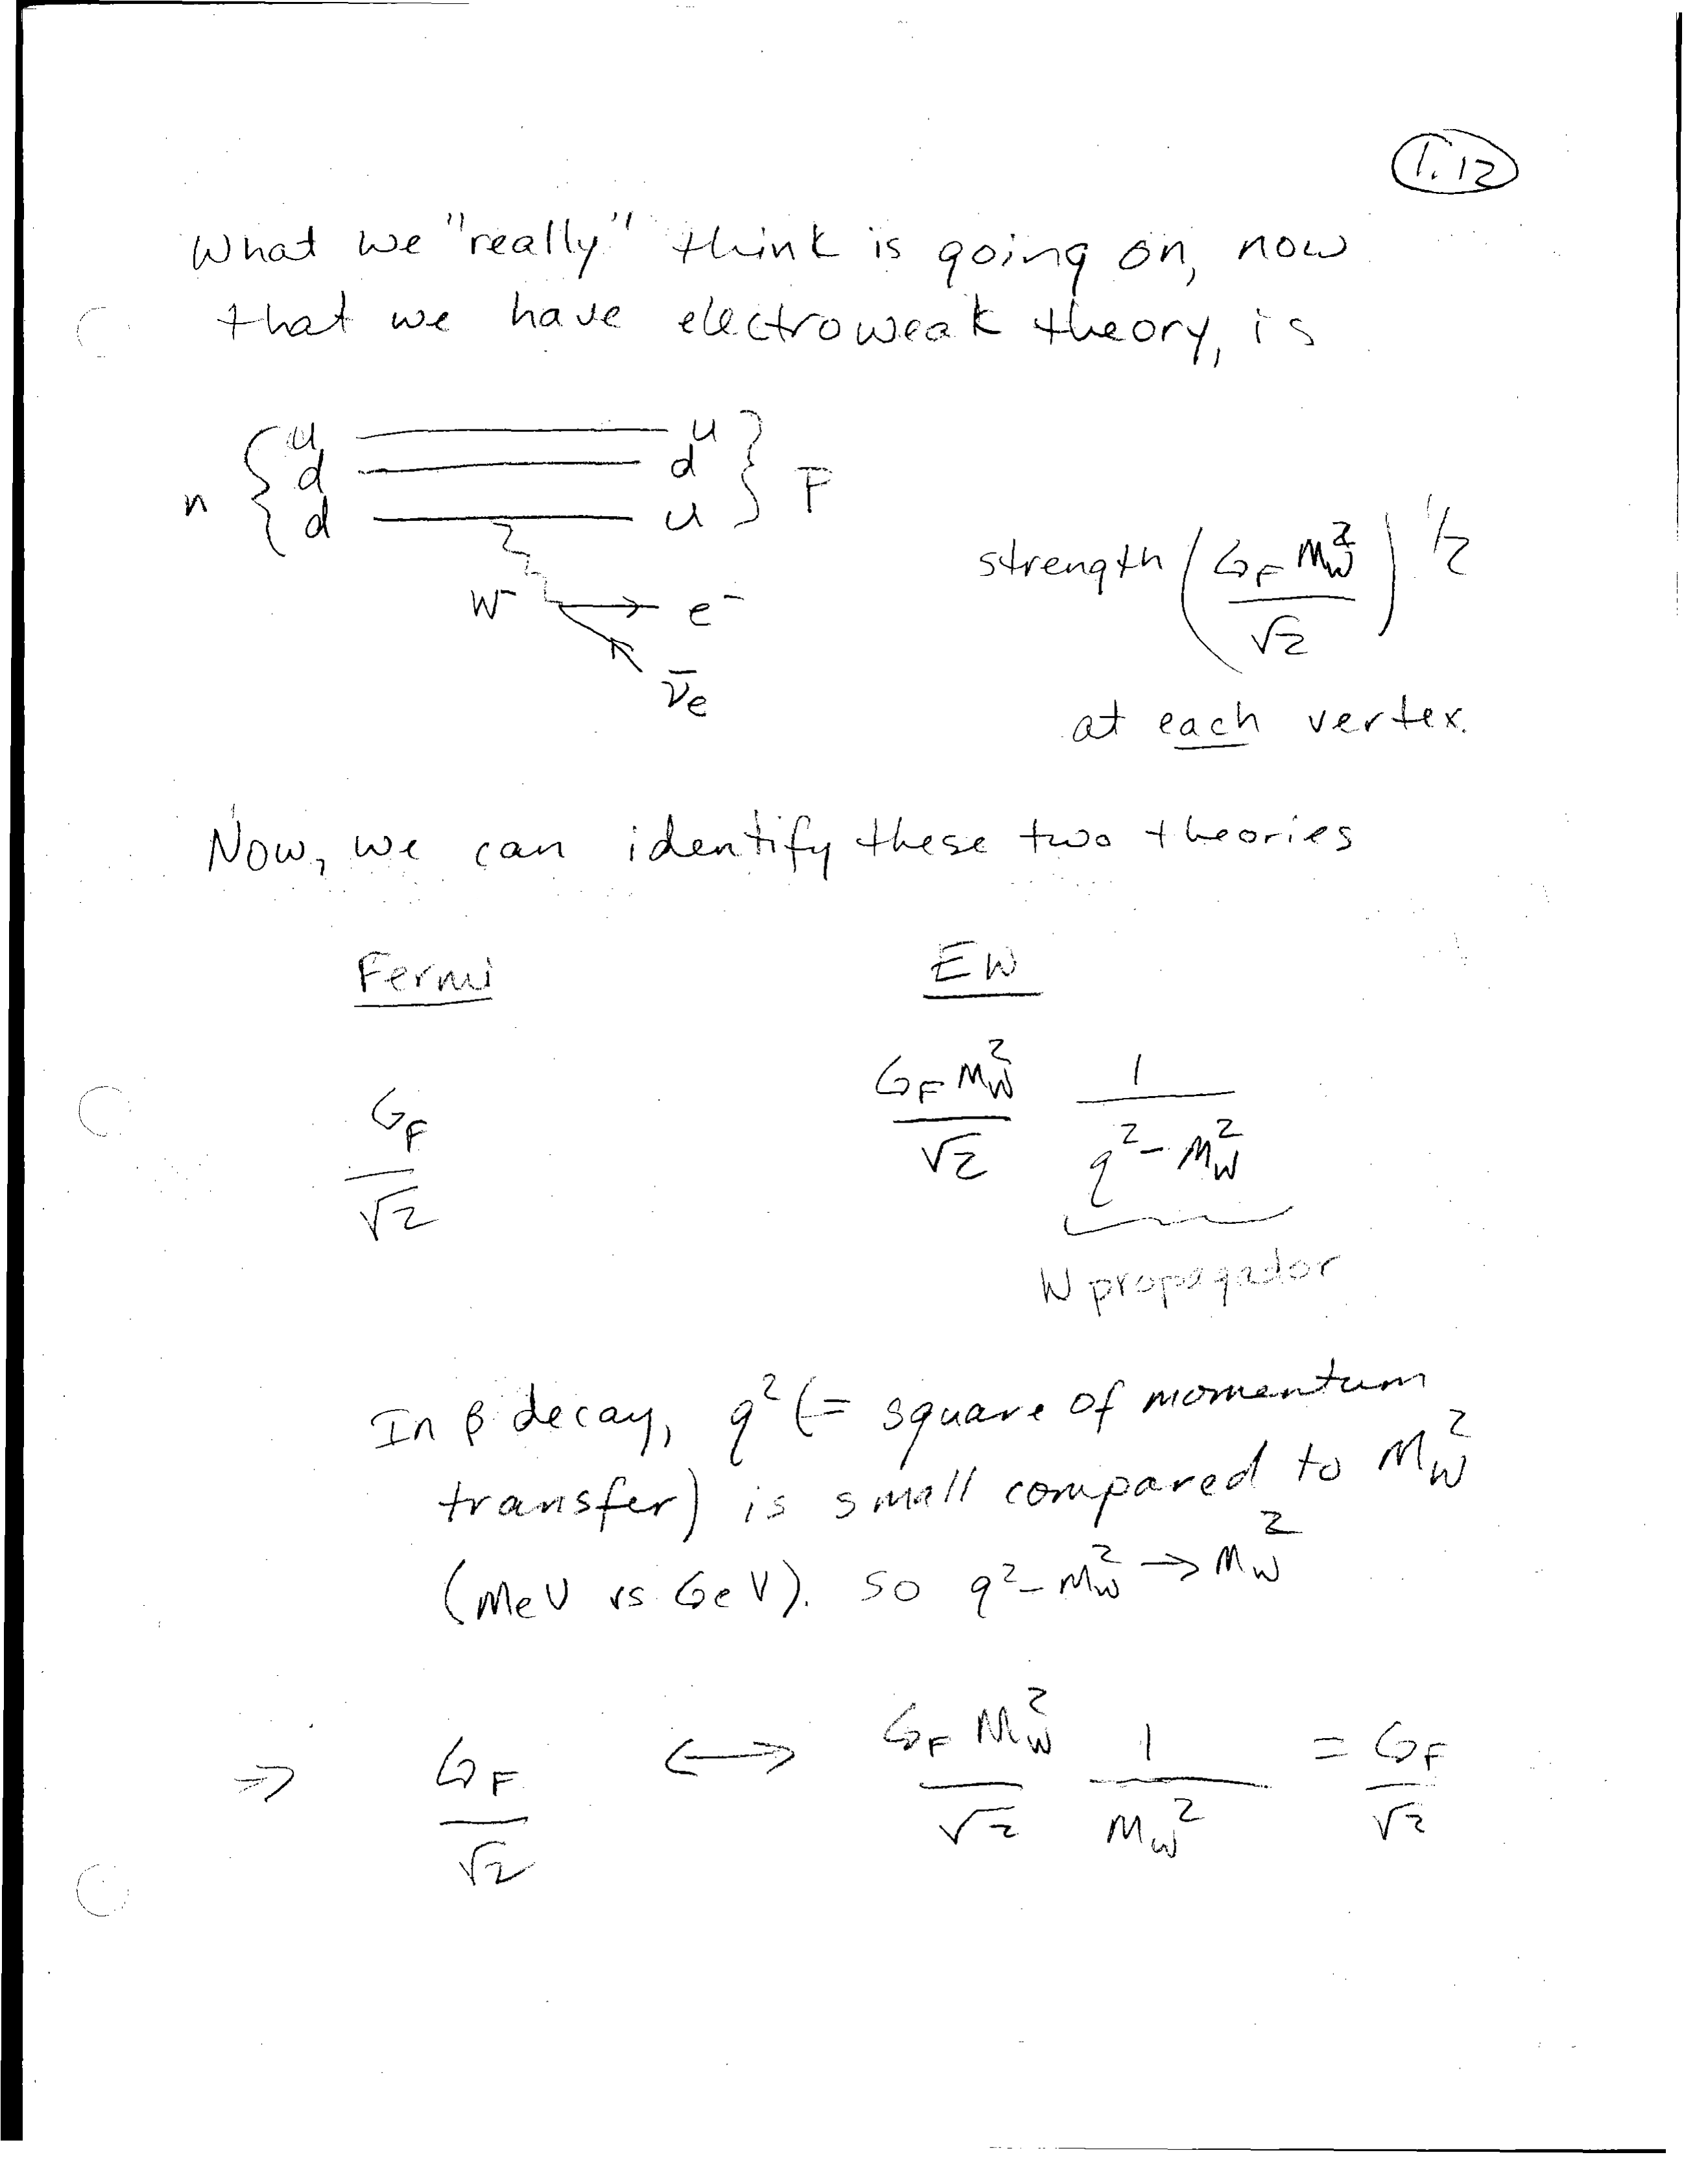 1.12
What we "really" think is going on, now
that we have electroweak theory, is
n { u u } P
d d
d u
W⁻ e⁻
ν̄e
strength (G_F M_W² / √2)^1/2
at each vertex.
Now, we can identify these two theories
Fermi EW
G_F / √2    G_F M_W² / √2  1 / (q² - M_W²)
W propagador
In β decay, q² (= square of momentum
transfer) is small compared to M_W²
(MeV vs GeV). so q² - M_W² → M_W²
⇒ G_F / √2 ↔ G_F M_W² / √2  1 / M_W² = G_F / √2